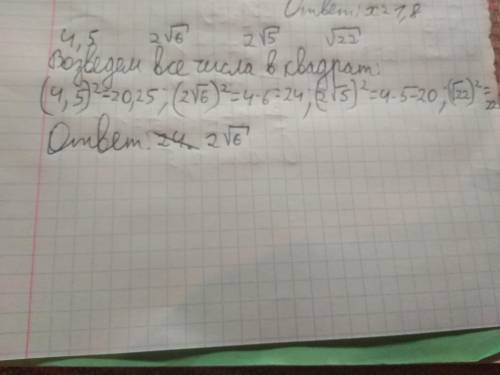 Ответ: x = 1,8
4,5 2√6 2√5 √22
Возведем все числа в квадрат:
(4,5)²=20,25; (2√6)²=4·6=24; (2√5)²=4·5=20; (√22)²=
22
Ответ: 24 2√6